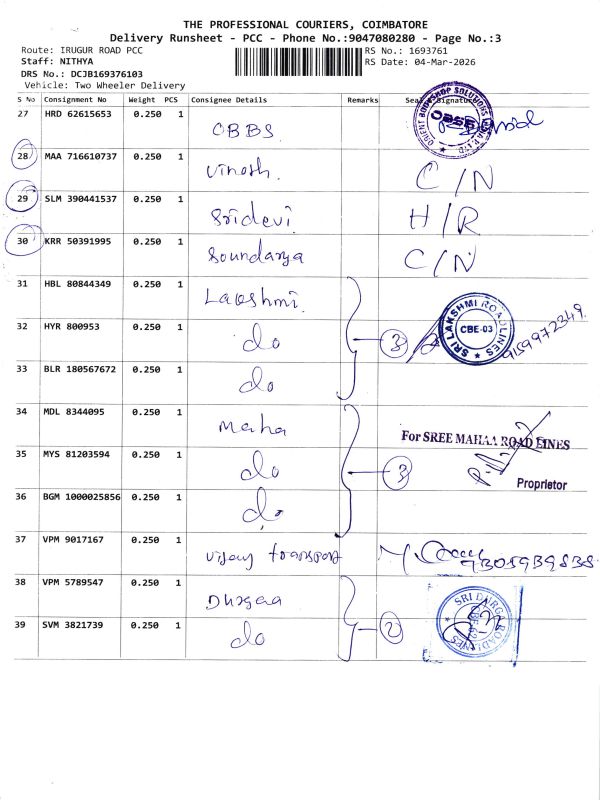 THE PROFESSIONAL COURIERS, COIMBATORE
Delivery Runsheet - PCC - Phone No.:9047080280 - Page No.:3
Route: IRUGUR ROAD PCC
RS No.: 1693761
Staff: NITHYA
RS Date: 04-Mar-2026
DRS No.: DCJB169376103
Vehicle: Two Wheeler Delivery
S No Consignment No Weight PCS Consignee Details Remarks Seal Signature
27 HRD 62615653 0.250 1 OBBS
ORIENT BODYSHOP SOLUTIONS
OBSS
28 MAA 716610737 0.250 1 Vinoth. C/N
29 SLM 390441537 0.250 1 Sridevi H/R
30 KRR 50391995 0.250 1 Soundarya C/N
31 HBL 80844349 0.250 1 Lakshmi
32 HYR 800953 0.250 1 do 3
SRI LAKSHMI ROADLINES
CBE-03
9159972349
33 BLR 180567672 0.250 1 do
34 MDL 8344095 0.250 1 Maha
For SREE MAHAA ROAD LINES
35 MYS 81203594 0.250 1 do 3
Proprietor
36 BGM 1000025856 0.250 1 do
37 VPM 9017167 0.250 1 Vijay transport
38 VPM 5789547 0.250 1 Durgaa
SRI DURGA ROADLINES
39 SVM 3821739 0.250 1 do 2